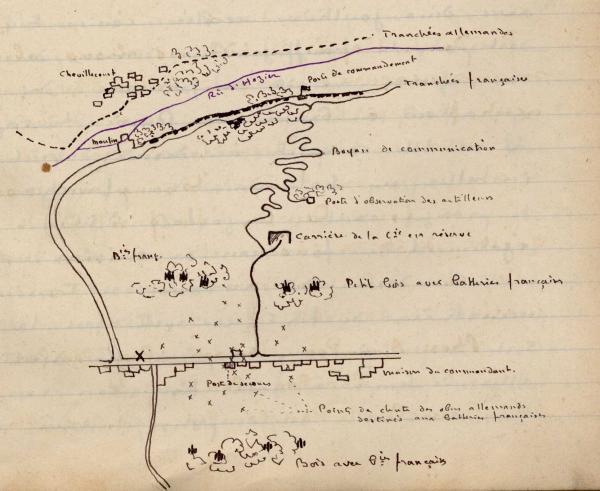 Tranchées allemandes
Chevillecourt
Poste de commandement
Rû d'Hozien
Tranchées françaises
moulin
Boyau de communication
Poste d'observation des artilleurs
Carrière de la Cie en réserve
Bies franç.
Petit bois avec batteries françaises
maison du commandant.
Poste de secours
Points de chute des obus allemands
destinés aux batteries françaises
Bois avec Bies françaises